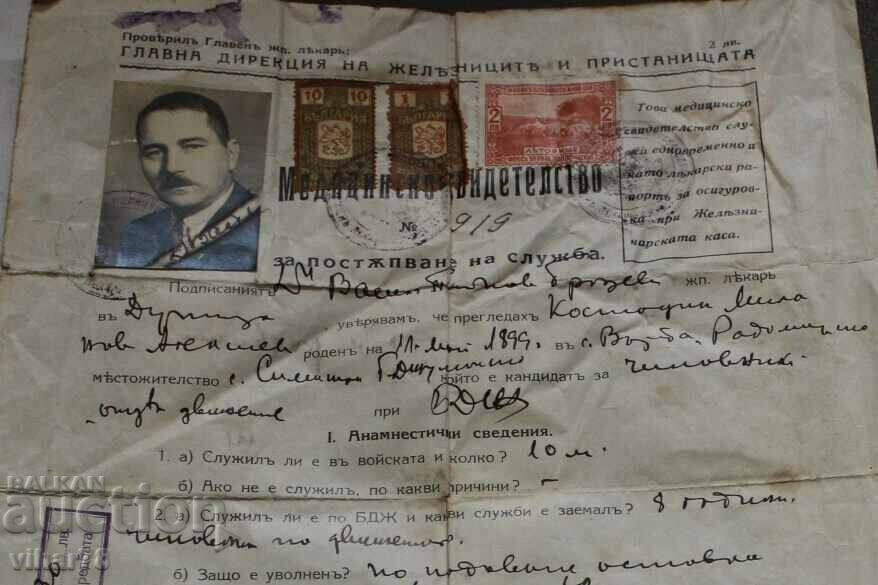 Провѣрилъ Главенъ жп. лѣкарь:
2 лв.
ГЛАВНА ДИРЕКЦИЯ НА ЖЕЛѢЗНИЦИТѢ И ПРИСТАНИЩАТА
10 10
БЪЛГАРИЯ
1
БЪЛГАРИЯ
2 2
ЛѢТОВИЩЕ
Това медицинско
свидетелство слу-
жи едновременно и
като лѣкарски ра-
портъ за осигуров-
ка при Желѣзни-
чарската каса.
Медицинско свидетелство
№ 919
за постѫпване на служба.
Подписаниятъ Д-ръ Василъ жп. лѣкарь
въ Дупница, увѣрявамъ, че прегледахъ Костадинъ Мила
нов Алексиев роденъ на 11 май 1899 въ с. Радомирско
мѣстожителство с. който е кандидатъ за чиновникъ
отдѣл движение при БДЖ
I. Анамнестични сведения.
1. а) Служилъ ли е въ войската и колко? 10 м.
б) Ако не е служилъ, по какви причини? –
2. а) Служилъ ли е по БДЖ и какви служби е заемалъ? 8 години
чиновникъ по движението.
б) Защо е уволненъ? по подадена оставка
лв.
BALKAN
auction
vihar68